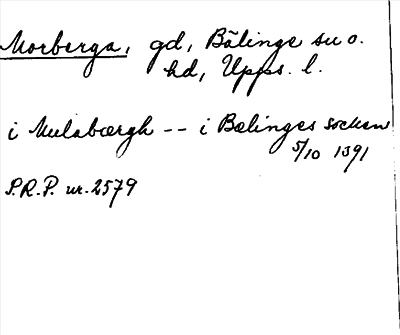 Morberga, gd, Bälinge sn o.
hd, Upps. l.
i Mulabærgh -- i Bælinges socken
5/10 1391
S.R.P. nr. 2579